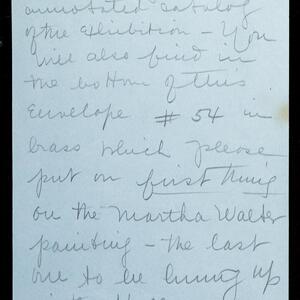 annotated catalog
of the Exhibition - You
will also find in
the bottom of this
Envelope # 54 in
brass which please
put on first thing
on the Martha Walter
painting - the last
one to be hung up